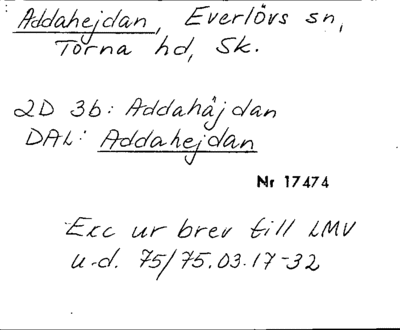 Addahejdan, Everlövs sn,
Torna hd, Sk.
2D 3b: Addahåjdan
DAL: Addahejdan
Nr 17474
Exc ur brev till LMV
u.d. 75/75.03.17-32